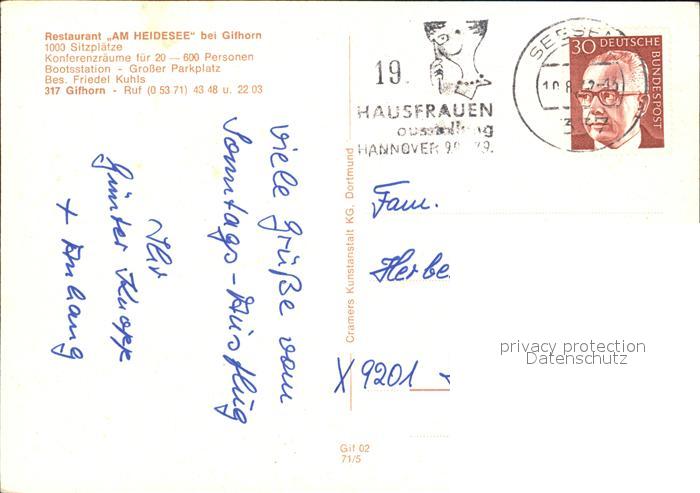 Restaurant „AM HEIDESEE" bei Gifhorn
1000 Sitzplätze
Konferenzräume für 20 — 600 Personen
Bootsstation - Großer Parkplatz
Bes. Friedel Kuhls
317 Gifhorn - Ruf (0 53 71) 43 48 u. 22 03
Viele Grüße vom
Sonntags-Ausflug
Ihr
Günter Knopp
+ Anhang
Cramers Kunstanstalt KG. Dortmund
19.
HAUSFRAUEN
ausstellung
HANNOVER
SEESEN
30 DEUTSCHE
BUNDESPOST
Fam.
Herbe
X 9201
privacy protection
Datenschutz
Gif 02
71/5